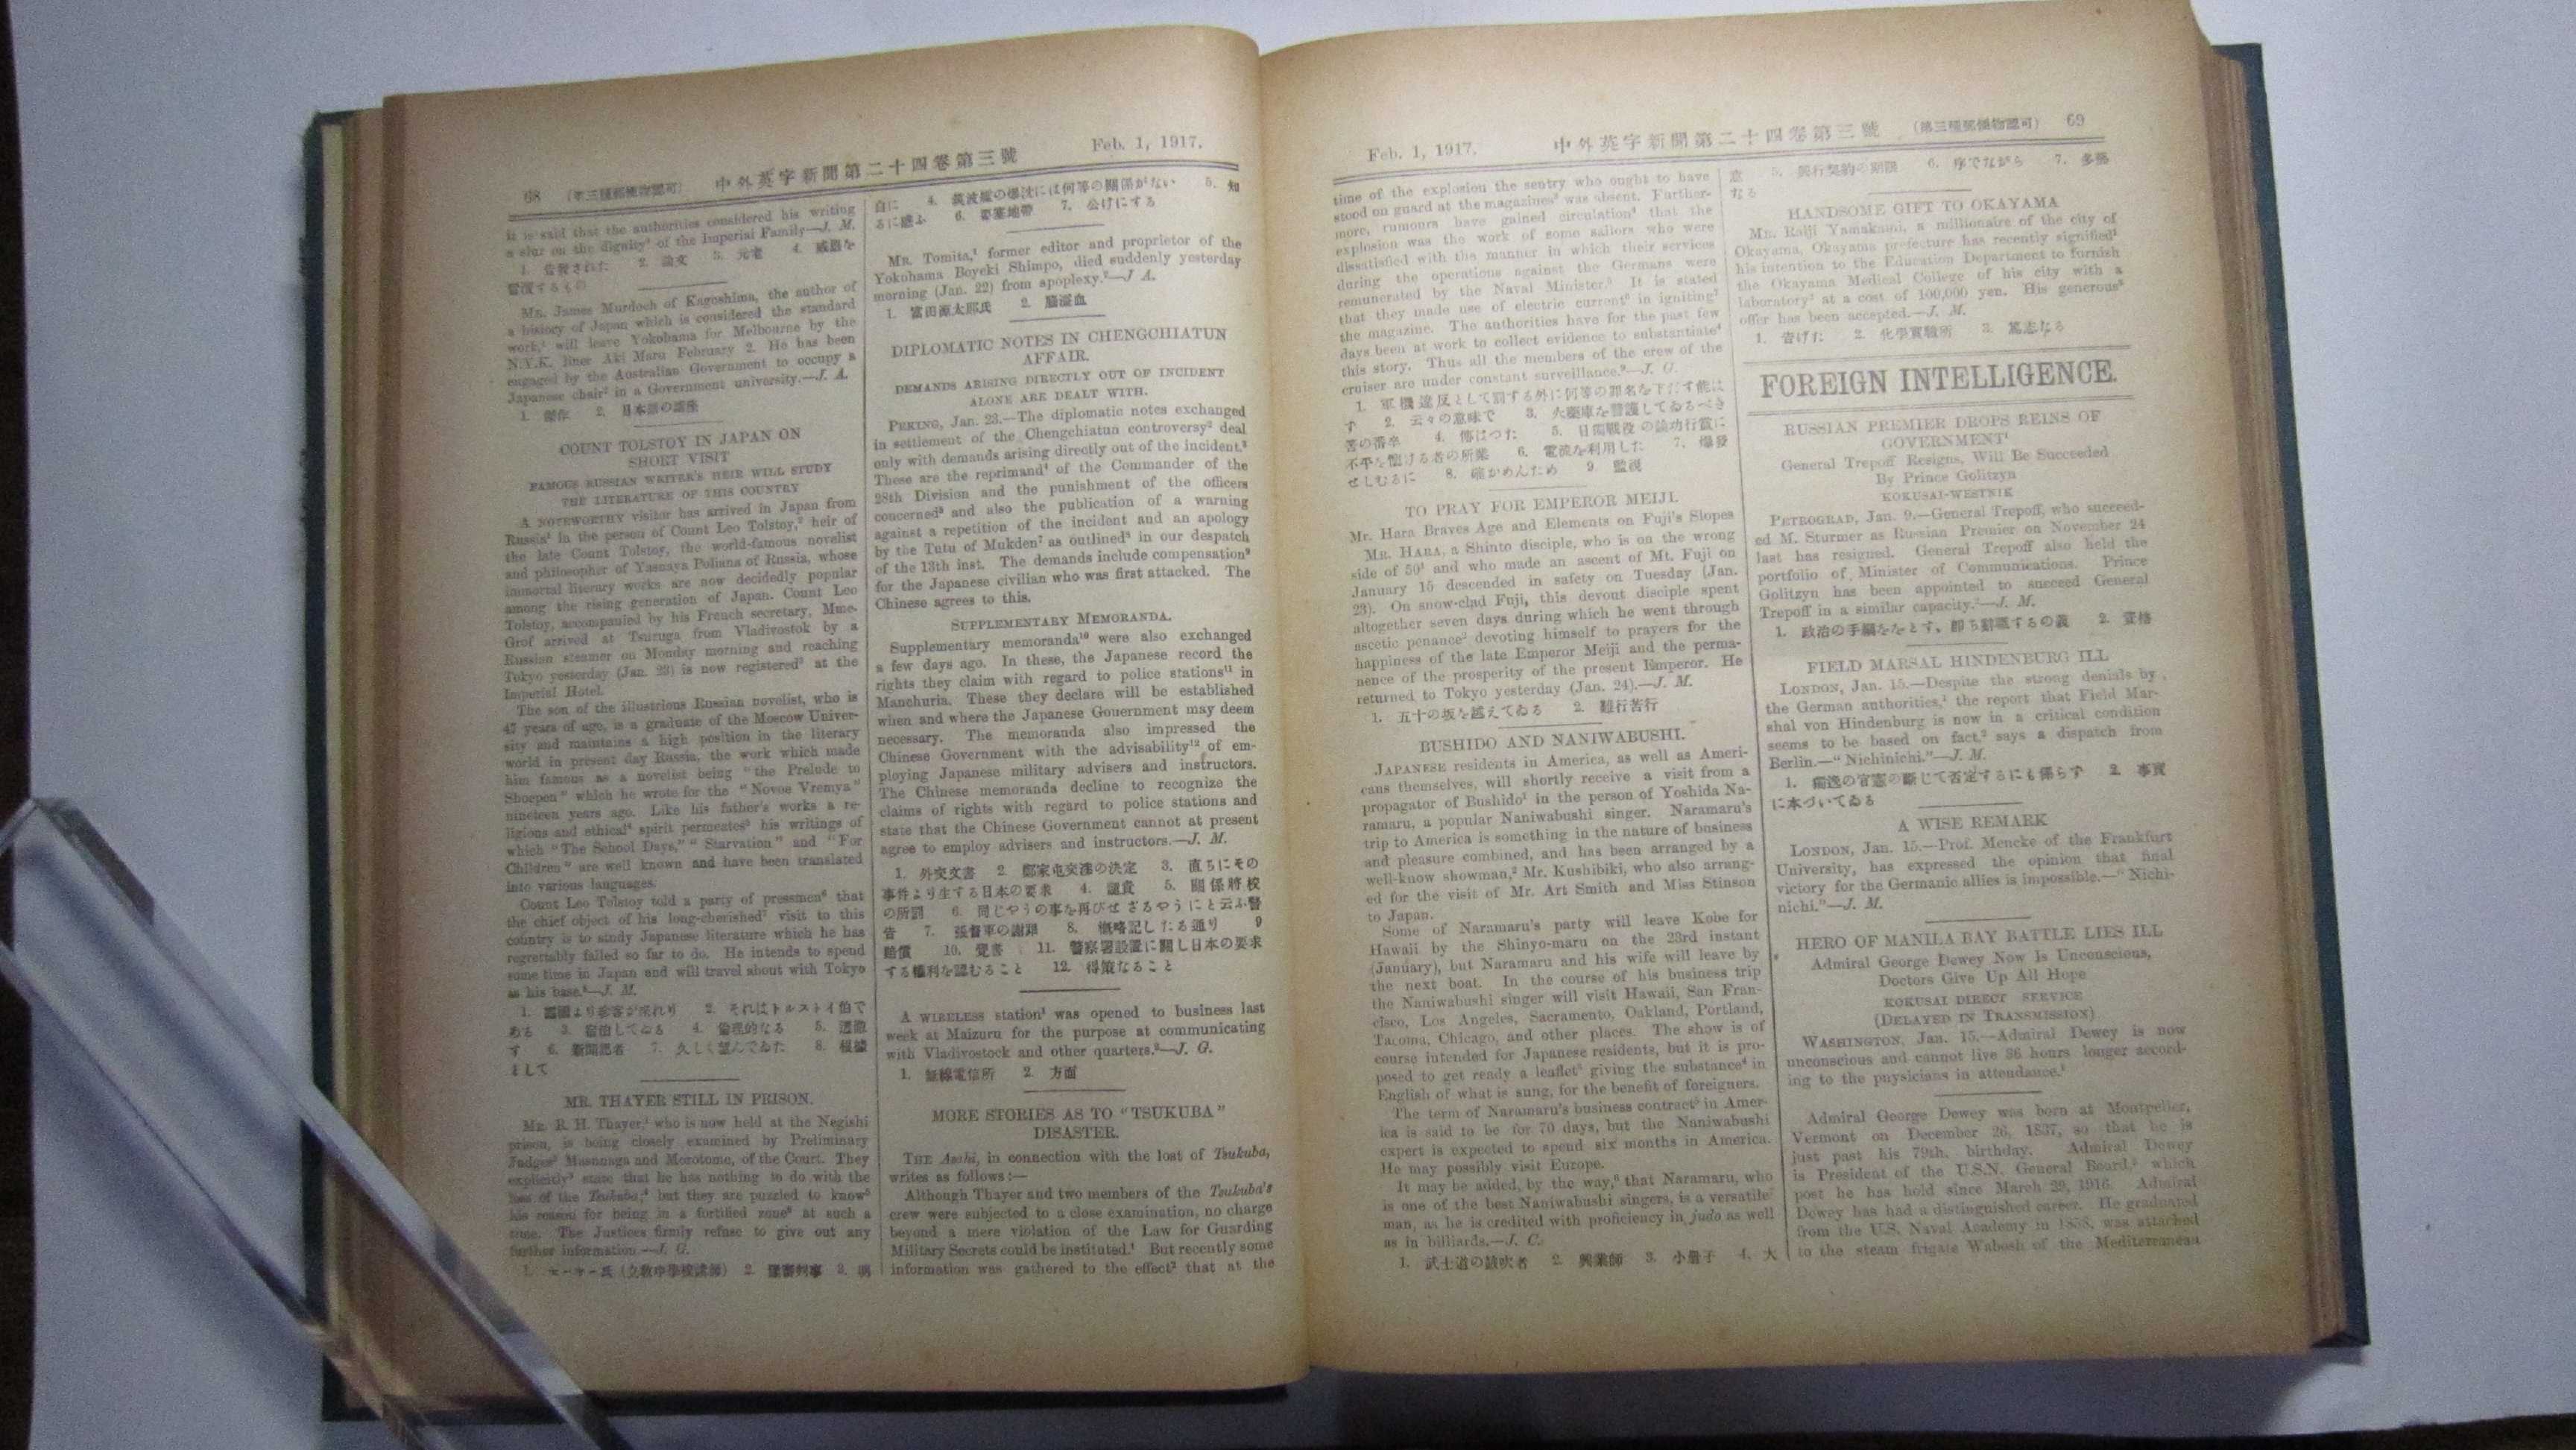 68 (第三種郵便物認可) 中外英字新聞第二十四卷第三號 Feb. 1, 1917.
it is said that the authorities considered his writing
a slur on the dignity⁴ of the Imperial Family—J. M.
1. 告發された 2. 論文 3. 元老 4. 威嚴を
冒瀆するもの
MR. James Murdoch of Kagoshima, the author of
a history of Japan which is considered the standard
work,¹ will leave Yokohama for Melbourne by the
N.Y.K. liner Aki Maru February 2. He has been
engaged by the Australian Government to occupy a
Japanese chair² in a Government university.—J. A.
1. 傑作 2. 日本語の講座
COUNT TOLSTOY IN JAPAN ON
SHORT VISIT
FAMOUS RUSSIAN WRITER'S HEIR WILL STUDY
THE LITERATURE OF THIS COUNTRY
A NOTEWORTHY visitor has arrived in Japan from
Russia¹ in the person of Count Leo Tolstoy,² heir of
the late Count Tolstoy, the world-famous novelist
and philosopher of Yasnaya Poliana of Russia, whose
immortal literary works are now decidedly popular
among the rising generation of Japan. Count Leo
Tolstoy, accompanied by his French secretary, Mme.
Grof arrived at Tsuruga from Vladivostok by a
Russian steamer on Monday morning and reaching
Tokyo yesterday (Jan. 23) is now registered³ at the
Imperial Hotel.
The son of the illustrious Russian novelist, who is
47 years of age, is a graduate of the Moscow Univer-
sity and maintains a high position in the literary
world in present day Russia, the work which made
him famous as a novelist being "the Prelude to
Shoepen" which he wrote for the "Novoe Vremya"
nineteen years ago. Like his father's works a re-
ligions and ethical⁴ spirit permeates⁵ his writings of
which "The School Days," "Starvation" and "For
Children" are well known and have been translated
into various languages.
Count Leo Tolstoy told a party of pressmen⁶ that
the chief object of his long-cherished⁷ visit to this
country is to study Japanese literature which he has
regrettably failed so far to do. He intends to spend
some time in Japan and will travel about with Tokyo
as his base.⁸—J. M.
1. 露國より珍客が來れり 2. それはトルストイ伯で
ある 3. 宿泊してゐる 4. 倫理的なる 5. 透徹
す 6. 新聞記者 7. 久しく望んでゐた 8. 根據
として
MR. THAYER STILL IN PRISON.
MR. R. H. Thayer,¹ who is now held at the Negishi
prison, is being closely examined by Preliminary
Judges² Masunaga and Morotome, of the Court. They
explicitly³ state that he has nothing to do with the
loss of the Tsukuba;⁴ but they are puzzled to know⁵
his reason for being in a fortified zone⁶ at such a
time. The Justices firmly refuse to give out any
further information.—J. G.
1. セーヤー氏 (立教中學校講師) 2. 豫審判事 3. 明
白に 4. 筑波艦の爆沈には何等の關係がない 5. 知
るに惑ふ 6. 要塞地帶 7. 公けにする
MR. Tomita,¹ former editor and proprietor of the
Yokohama Boyeki Shimpo, died suddenly yesterday
morning (Jan. 22) from apoplexy.²—J A.
1. 富田源太郎氏 2. 腦溢血
DIPLOMATIC NOTES IN CHENGCHIATUN
AFFAIR.
DEMANDS ARISING DIRECTLY OUT OF INCIDENT
ALONE ARE DEALT WITH.
PEKING, Jan. 23.—The diplomatic notes exchanged
in settlement of the Chengchiatun controversy² deal
only with demands arising directly out of the incident.³
These are the reprimand⁴ of the Commander of the
28th Division and the punishment of the officers
concerned⁵ and also the publication of a warning
against a repetition of the incident and an apology
by the Tutu of Mukden⁷ as outlined⁸ in our despatch
of the 13th inst. The demands include compensation⁹
for the Japanese civilian who was first attacked. The
Chinese agrees to this.
SUPPLEMENTARY MEMORANDA.
Supplementary memoranda¹⁰ were also exchanged
a few days ago. In these, the Japanese record the
rights they claim with regard to police stations¹¹ in
Manchuria. These they declare will be established
when and where the Japanese Gouernment may deem
necessary. The memoranda also impressed the
Chinese Government with the advisability¹² of em-
ploying Japanese military advisers and instructors.
The Chinese memoranda decline to recognize the
claims of rights with regard to police stations and
state that the Chinese Government cannot at present
agree to employ advisers and instructors.—J. M.
1. 外交文書 2. 鄭家屯交渉の決定 3. 直ちにその
事件より生する日本の要求 4. 譴責 5. 關係將校
の所罰 6. 同じやうの事を再びせざるやうにと云ふ警
告 7. 張督軍の謝罪 8. 概略記したる通り 9
賠償 10. 覺書 11. 警察署設置に關し日本の要求
する權利を認むること 12. 得策なること
A WIRELESS station¹ was opened to business last
week at Maizuru for the purpose at communicating
with Vladivostock and other quarters.²—J. G.
1. 無線電信所 2. 方面
MORE STORIES AS TO "TSUKUBA"
DISASTER.
THE Asahi, in connection with the lost of Tsukuba,
writes as follows:—
Although Thayer and two members of the Tsukuba's
crew were subjected to a close examination, no charge
beyond a mere violation of the Law for Guarding
Military Secrets could be instituted.¹ But recently some
information was gathered to the effect² that at the
Feb. 1, 1917. 中外英字新聞第二十四卷第三號 (第三種郵便物認可) 69
time of the explosion the sentry who ought to have
stood on guard at the magazines³ was absent. Further-
more, rumours have gained circulation⁴ that the
explosion was the work of some sailors who were
dissatisfied with the manner in which their services
during the operations against the Germans were
remunerated by the Naval Minister.⁵ It is stated
that they made use of electric current⁶ in igniting⁷
the magazine. The authorities have for the past few
days been at work to collect evidence to substantiate⁸
this story. Thus all the members of the crew of the
cruiser are under constant surveillance.⁹—J. G.
1. 軍機違反として罰する外に何等の罪名を下だす能は
ず 2. 云々の意味で 3. 火藥庫を警護してゐるべき
筈の番卒 4. 傳はつた 5. 日獨戰役の論功行賞に
不平を懷ける者の所業 6. 電流を利用した 7. 爆發
せしむるに 8. 確かめんため 9. 監視
TO PRAY FOR EMPEROR MEIJI.
Mr. Hara Braves Age and Elements on Fuji's Slopes
MR. HARA, a Shinto disciple, who is on the wrong
side of 50¹ and who made an ascent of Mt. Fuji on
January 15 descended in safety on Tuesday (Jan.
23). On snow-clad Fuji, this devout disciple spent
altogether seven days during which he went through
ascetic penance² devoting himself to prayers for the
happiness of the late Emperor Meiji and the perma-
nence of the prosperity of the present Emperor. He
returned to Tokyo yesterday (Jan. 24).—J. M.
1. 五十の坂を越えてゐる 2. 難行苦行
BUSHIDO AND NANIWABUSHI.
JAPANESE residents in America, as well as Ameri-
cans themselves, will shortly receive a visit from a
propagator of Bushido¹ in the person of Yoshida Na-
ramaru, a popular Naniwabushi singer. Naramaru's
trip to America is something in the nature of business
and pleasure combined, and has been arranged by a
well-know showman,² Mr. Kushibiki, who also arrang-
ed for the visit of Mr. Art Smith and Miss Stinson
to Japan.
Some of Naramaru's party will leave Kobe for
Hawaii by the Shinyo-maru on the 23rd instant
(January), but Naramaru and his wife will leave by
the next boat. In the course of his business trip
the Naniwabushi singer will visit Hawaii, San Fran-
cisco, Los Angeles, Sacramento, Oakland, Portland,
Tacoma, Chicago, and other places. The show is of
course intended for Japanese residents, but it is pro-
posed to get ready a leaflet³ giving the substance⁴ in
English of what is sung, for the benefit of foreigners.
The term of Naramaru's business contract⁵ in Amer-
ica is said to be for 70 days, but the Naniwabushi
expert is expected to spend six months in America.
He may possibly visit Europe.
It may be added, by the way,⁶ that Naramaru, who
is one of the best Naniwabushi singers, is a versatile⁷
man, as he is credited with proficiency in judo as well
as in billiards.—J. C.
1. 武士道の鼓吹者 2. 興業師 3. 小册子 4. 大
意 5. 興行契約の期限 6. 序でながら 7. 多藝
なる
HANDSOME GIFT TO OKAYAMA
MR. Raiji Yamakami, a millionaire of the city of
Okayama, Okayama prefecture has recently signified¹
his intention to the Education Department to furnish
the Okayama Medical College of his city with a
laboratory² at a cost of 100,000 yen. His generous³
offer has been accepted.—J. M.
1. 告げた 2. 化學實驗所 3. 篤志なる
FOREIGN INTELLIGENCE.
RUSSIAN PREMIER DROPS REINS OF
GOVERNMENT¹
General Trepoff Resigns, Will Be Succeeded
By Prince Golitzyn
KOKUSAI-WESTNIK
PETROGRAD, Jan. 9.—General Trepoff, who succeed-
ed M. Sturmer as Russian Premier on November 24
last has resigned. General Trepoff also held the
portfolio of Minister of Communications. Prince
Golitzyn has been appointed to succeed General
Trepoff in a similar capacity.²—J. M.
1. 政治の手綱をおとす、卽ち辭職するの義 2. 資格
FIELD MARSAL HINDENBURG ILL
LONDON, Jan. 15.—Despite the strong denials by
the German authorities,¹ the report that Field Mar-
shal von Hindenburg is now in a critical condition
seems to be based on fact,² says a dispatch from
Berlin.—"Nichinichi."—J. M.
1. 獨逸の官憲の斷じて否定するにも係らず 2. 事實
に本づいてゐる
A WISE REMARK
LONDON, Jan. 15.—Prof. Mencke of the Frankfurt
University, has expressed the opinion that final
victory for the Germanic allies is impossible.—"Nichi-
nichi."—J. M.
HERO OF MANILA BAY BATTLE LIES ILL
Admiral George Dewey Now Is Unconscious,
Doctors Give Up All Hope
KOKUSAI DIRECT SERVICE
(DELAYED IN TRANSMISSION)
WASHINGTON, Jan. 15.—Admiral Dewey is now
unconscious and cannot live 36 hours longer accord-
ing to the pnysicians in attendance.¹
Admiral George Dewey was born at Montpelier,
Vermont on December 26, 1837, so that he is
just past his 79th. birthday. Admiral Dewey
is President of the U.S.N. General Board,² which
post he has hold since March 29, 1916. Admiral
Dewey has had a distinguished career. He graduated
from the U.S. Naval Academy in 1858, was attached
to the steam frigate Wabash of the Mediterranean